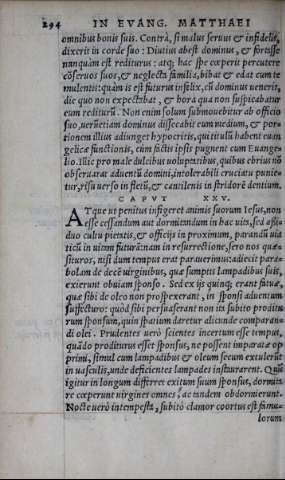 294 IN EVANG. MATTHAEI
omnibus bonis suis. Contrà, si malus seruus & infidelis,
dixerit in corde suo: Diutius abest dominus, & fortasse
nunquàm est rediturus: atq; hac spe cœperit percutere
cōseruos suos, & neglecta familia, bibat & edat cum te
mulentis: quàm is est futurus infelix, cū dominus venerit,
die quo non expectabat, & hora qua non suspicabatur
eum rediturū. Non enim solum submouebitur ab officio
suo, verūetiam dominus dissecabit eum medium, & por=
tionem illius adiunget hypocritis, qui titulū habent euan
gelicæ functionis, cùm factis ipsis pugnent cum Euange=
lio. Illic pro male dulcibus voluptatibus, quibus ebrius nō
obseruarat aduentū domini, intolerabili cruciatu punie=
tur, risu verso in fletū, & cantilenis in stridorē dentium.
CAPVT XXV.
ATque vt penitus infigeret animis suorum Iesus, non
esse cessandum aut dormitandum in hac vita, sed assi=
duo cultu pietatis, & officijs in proximum, parandū via
ticū in vitam futurā: nam in resurrectione, sero nos quæ=
situros, nisi dum tempus erat parauerimus: adiecit para=
bolam de decē virginibus, quæ sumptis lampadibus suis,
exierunt obuiam sponso. Sed ex ijs quinq; erant fatuæ,
quæ sibi de oleo non prospexerant, in sponsi aduentum
suffecturo: quòd sibi persuaserant non ita subitò proditu
rum sponsum, quin spatium daretur alicunde comparan=
di olei. Prudentes verò scientes incertum esse tempus,
quādo proditurus esset sponsus, ne possent imparatæ op
primi, simul cum lampadibus & oleum secum extulerūt
in vasculis, vnde deficientes lampades instaurarent. Quū
igitur in longum differret exitum suum sponsus, dormita
re cœperunt virgines omnes, ac tandem obdormierunt.
Nocte verò intempesta, subitò clamor coortus est famu=
lorum